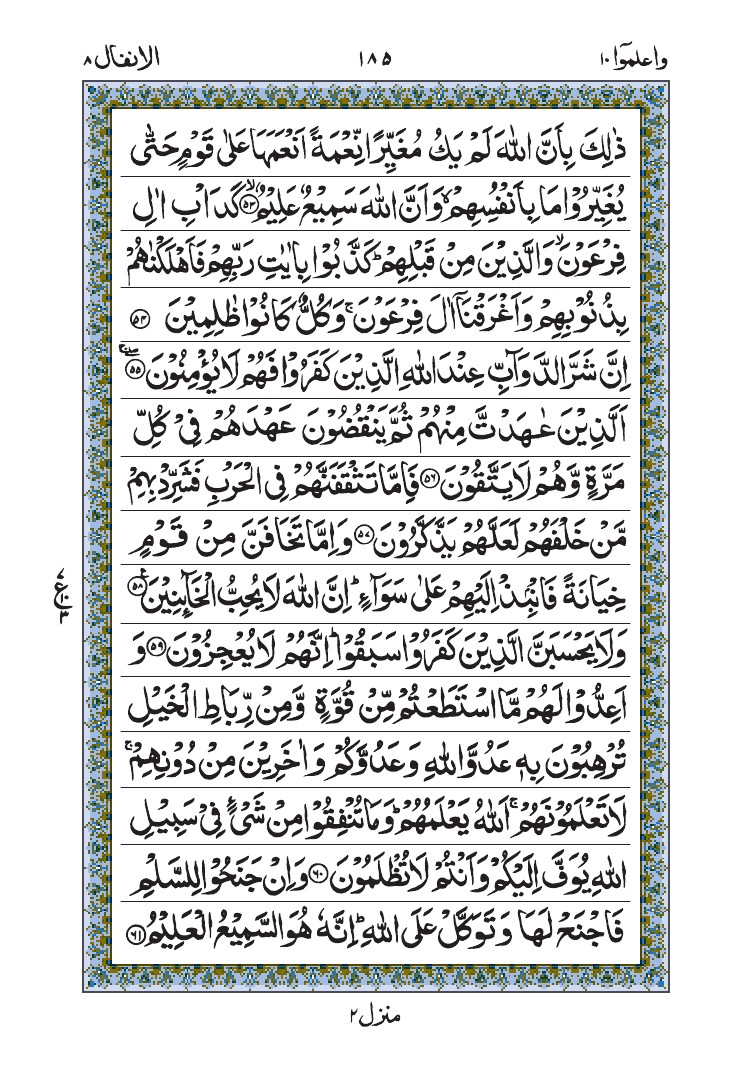 واعلموا ١٠ ١٨٥ الانفال ٨
ذٰلِكَ بِاَنَّ اللّٰهَ لَمْ يَكُ مُغَيِّرًا نِّعْمَةً اَنْعَمَهَا عَلٰى قَوْمٍ حَتّٰى
يُغَيِّرُوْا مَا بِاَنْفُسِهِمْ ۙ وَاَنَّ اللّٰهَ سَمِيْعٌ عَلِيْمٌ ۙ﴿۵۳﴾ كَدَاْبِ اٰلِ
فِرْعَوْنَ ۙ وَالَّذِيْنَ مِنْ قَبْلِهِمْ ؕ كَذَّبُوْا بِاٰيٰتِ رَبِّهِمْ فَاَهْلَكْنٰهُمْ
بِذُنُوْبِهِمْ وَاَغْرَقْنَاۤ اٰلَ فِرْعَوْنَ ۚ وَكُلٌّ كَانُوْا ظٰلِمِيْنَ ﴿۵۴﴾
اِنَّ شَرَّ الدَّوَآبِّ عِنْدَ اللّٰهِ الَّذِيْنَ كَفَرُوْا فَهُمْ لَا يُؤْمِنُوْنَ ﴿۵۵﴾ ۖۚ
اَلَّذِيْنَ عٰهَدْتَّ مِنْهُمْ ثُمَّ يَنْقُضُوْنَ عَهْدَهُمْ فِيْ كُلِّ
مَرَّةٍ وَّهُمْ لَا يَتَّقُوْنَ ﴿۵۶﴾ فَاِمَّا تَثْقَفَنَّهُمْ فِي الْحَرْبِ فَشَرِّدْ بِهِمْ
مَّنْ خَلْفَهُمْ لَعَلَّهُمْ يَذَّكَّرُوْنَ ﴿۵۷﴾ وَاِمَّا تَخَافَنَّ مِنْ قَوْمٍ
خِيَانَةً فَانْۢبِذْ اِلَيْهِمْ عَلٰى سَوَآءٍ ؕ اِنَّ اللّٰهَ لَا يُحِبُّ الْخَآئِنِيْنَ ﴿۵۸﴾
ع ٣
وَلَا يَحْسَبَنَّ الَّذِيْنَ كَفَرُوْا سَبَقُوْا ؕ اِنَّهُمْ لَا يُعْجِزُوْنَ ﴿۵۹﴾ وَ
اَعِدُّوْا لَهُمْ مَّا اسْتَطَعْتُمْ مِّنْ قُوَّةٍ وَّمِنْ رِّبَاطِ الْخَيْلِ
تُرْهِبُوْنَ بِهٖ عَدُوَّ اللّٰهِ وَعَدُوَّكُمْ وَاٰخَرِيْنَ مِنْ دُوْنِهِمْ ۚ
لَا تَعْلَمُوْنَهُمْ ۚ اَللّٰهُ يَعْلَمُهُمْ ؕ وَمَا تُنْفِقُوْا مِنْ شَيْءٍ فِيْ سَبِيْلِ
اللّٰهِ يُوَفَّ اِلَيْكُمْ وَاَنْتُمْ لَا تُظْلَمُوْنَ ﴿۶۰﴾ وَاِنْ جَنَحُوْا لِلسَّلْمِ
فَاجْنَحْ لَهَا وَتَوَكَّلْ عَلَى اللّٰهِ ؕ اِنَّهٗ هُوَ السَّمِيْعُ الْعَلِيْمُ ﴿۶۱﴾
منزل ٢